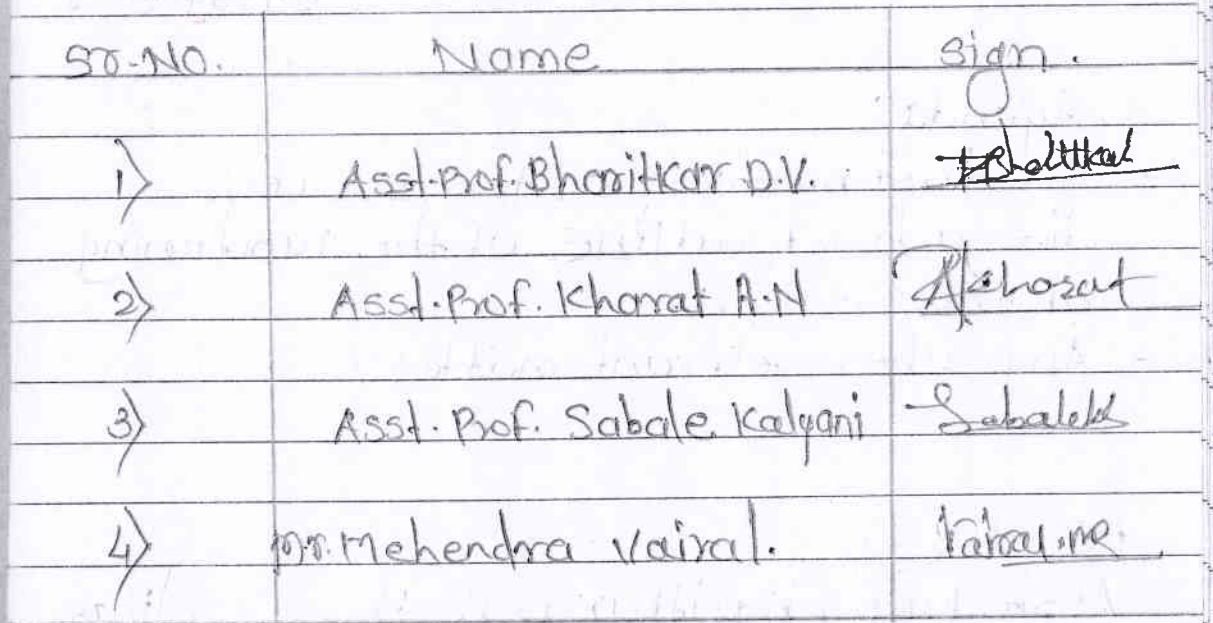 Sr.No. Name Sign.
1) Asst.Prof. Bharitkar D.V.
2) Asst.Prof. Kharat A.N AKharat
3) Asst. Prof. Sabale Kalyani Sabaleks
4) Mr. Mehendra Vairal.